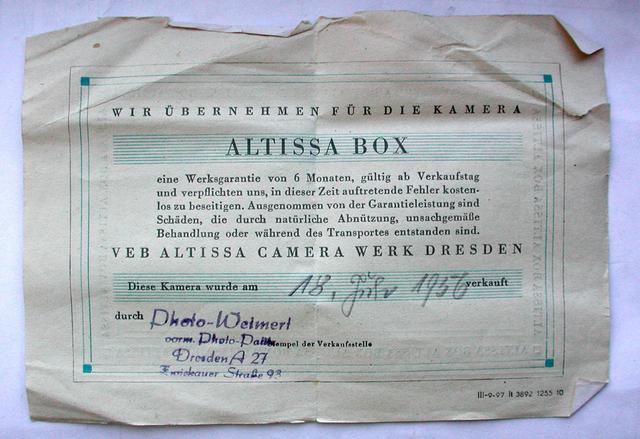 WIR ÜBERNEHMEN FÜR DIE KAMERA
ALTISSA BOX
eine Werksgarantie von 6 Monaten, gültig ab Verkaufstag
und verpflichten uns, in dieser Zeit auftretende Fehler kosten-
los zu beseitigen. Ausgenommen von der Garantieleistung sind
Schäden, die durch natürliche Abnützung, unsachgemäße
Behandlung oder während des Transportes entstanden sind.
VEB ALTISSA CAMERA WERK DRESDEN
Diese Kamera wurde am 18. 1956 verkauft
durch Photo-Weimert
vorm. Photo-
Stempel der Verkaufsstelle
Dresden A 27
Zwickauer Straße 93
III-9-97 It 3892 1255 10